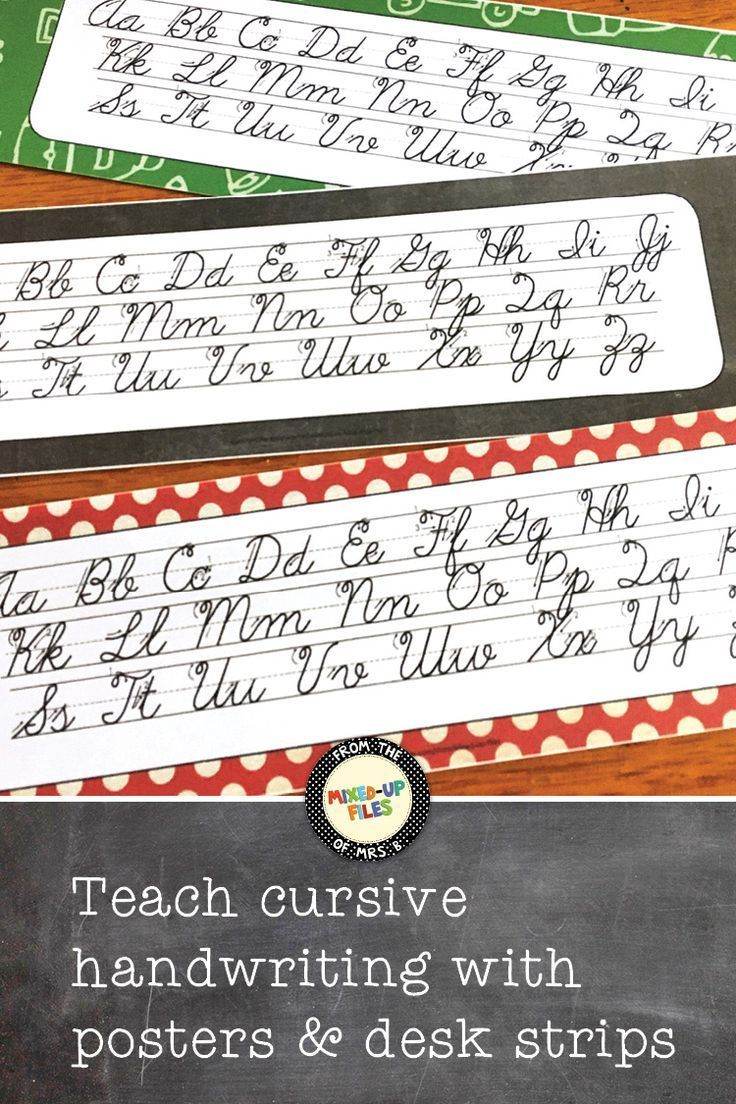 Aa Bb Cc Dd Ee Ff Gg Hh Ii
Kk Ll Mm Nn Oo Pp Qq Rr
Ss Tt Uu Vv Ww Xx
Bb Cc Dd Ee Ff Gg Hh Ii Jj
Ll Mm Nn Oo Pp Qq Rr
Tt Uu Vv Ww Xx Yy Zz
Aa Bb Cc Dd Ee Ff Gg Hh Ii
Kk Ll Mm Nn Oo Pp Qq
Ss Tt Uu Vv Ww Xx Yy
FROM THE
MIXED-UP
FILES
OF MRS. B
Teach cursive
handwriting with
posters & desk strips